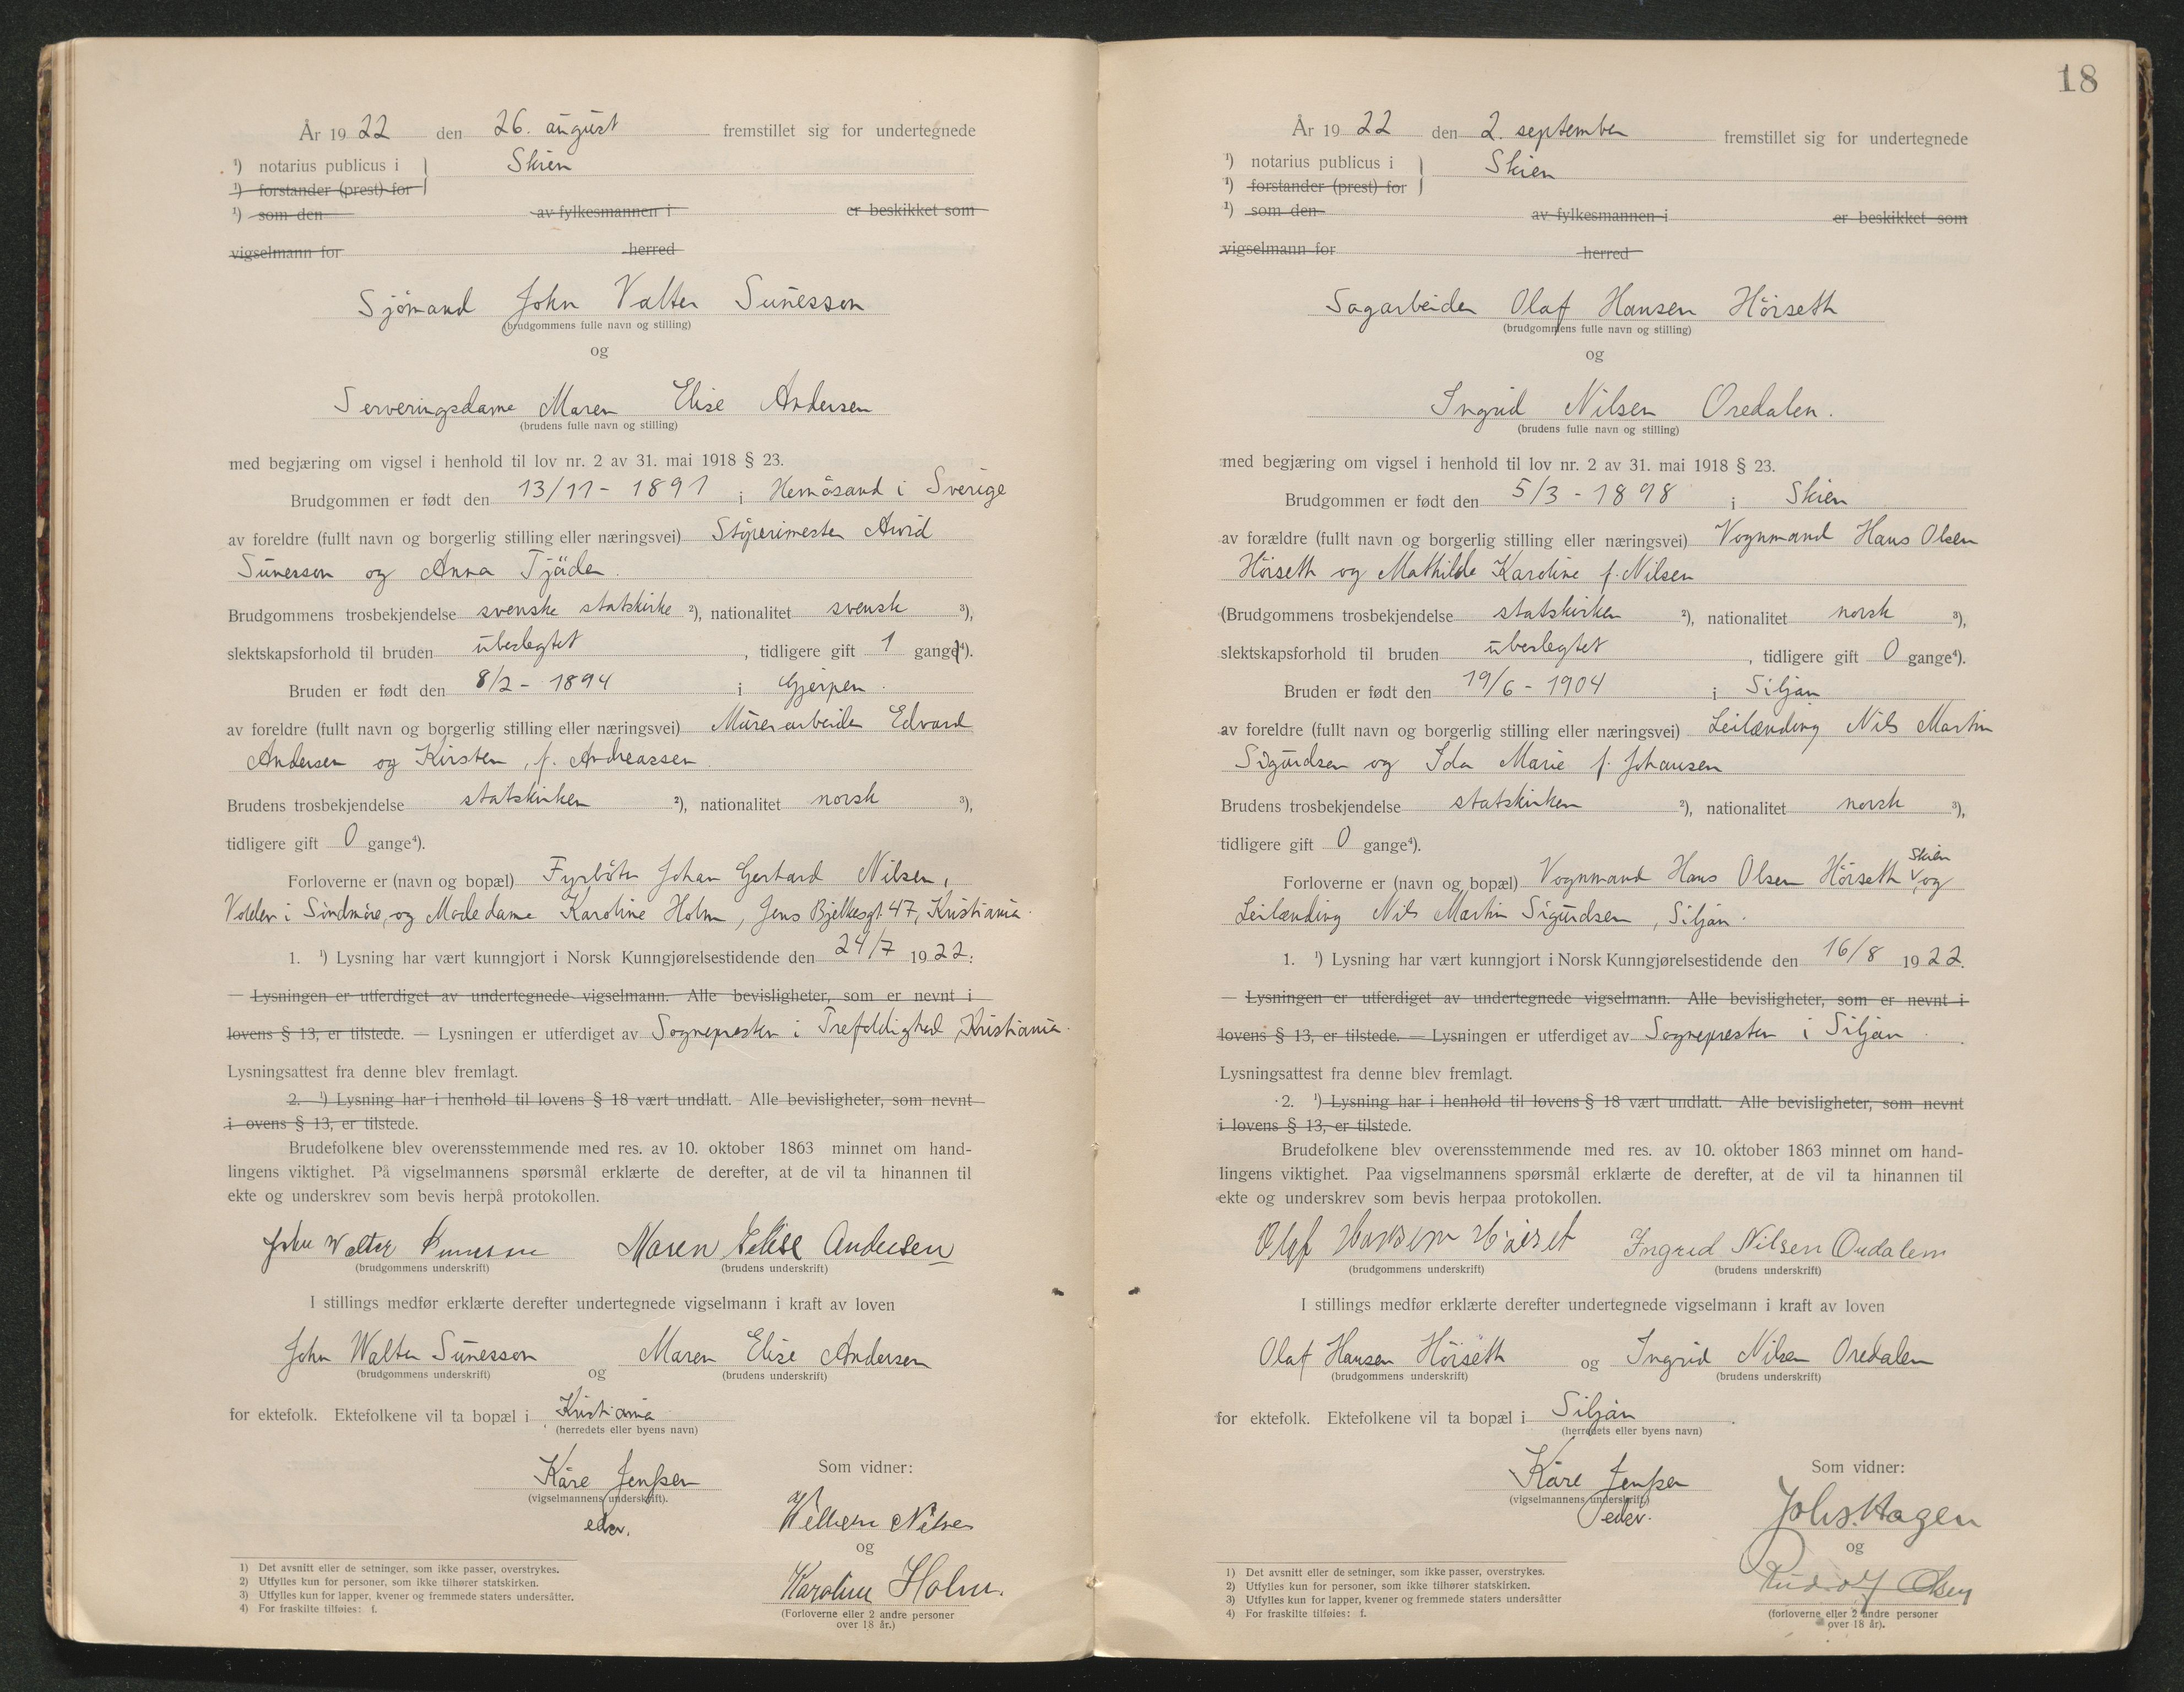 År 19 22 den 26. august fremstillet sig for undertegnede
¹) notarius publicus i Skien
¹) forstander (prest) for
¹) som den av fylkesmannen i er beskikket som
vigselmann for herred
Sjömand John Valter Sunesson
(brudgommens fulle navn og stilling)
og
Serveringsdame Maren Elise Andersen
(brudens fulle navn og stilling)
med begjæring om vigsel i henhold til lov nr. 2 av 31. mai 1918 § 23.
Brudgommen er født den 13/11 - 1891 i Hernösand i Sverige
av foreldre (fullt navn og borgerlig stilling eller næringsvei) Støperimester Arvid
Sunesson og Anna Tjäder.
Brudgommens trosbekjendelse svenske statskirke ²), nationalitet svensk ³),
slektskapsforhold til bruden ubeslegtet , tidligere gift 1 gange⁴).
Bruden er født den 8/2 - 1894 i Gjerpen.
av foreldre (fullt navn og borgerlig stilling eller næringsvei) Murerarbeider Edvard
Andersen og Kirsten, f. Andreassen.
Brudens trosbekjendelse statskirken ²), nationalitet norsk ³),
tidligere gift 0 gange⁴).
Forloverne er (navn og bopæl) Fyrböter Johan Gerhard Nilsen,
Volden i Söndmöre, og Modedame Karoline Holm, Jens Bjelkesgt. 47, Kristiania.
1. ¹) Lysning har vært kunngjort i Norsk Kunngjørelsestidende den 24/7 19 22.
— Lysningen er utferdiget av undertegnede vigselmann. Alle bevisligheter, som er nevnt i
lovens § 13, er tilstede. — Lysningen er utferdiget av Sognepresten i Trefoldighed, Kristiania.
Lysningsattest fra denne blev fremlagt.
2. ¹) Lysning har i henhold til lovens § 18 vært undlatt. Alle bevisligheter, som nevnt
i ovens § 13, er tilstede.
Brudefolkene blev overensstemmende med res. av 10. oktober 1863 minnet om hand-
lingens viktighet. På vigselmannens spørsmål erklærte de derefter, at de vil ta hinannen til
ekte og underskrev som bevis herpå protokollen.
John Walter Sunesson Maren Elise Andersen
(brudgommens underskrift) (brudens underskrift)
I stillings medfør erklærte derefter undertegnede vigselmann i kraft av loven
John Walter Sunesson og Maren Elise Andersen
(brudgommens underskrift) (brudens underskrift)
for ektefolk. Ektefolkene vil ta bopæl i Kristiania
(herredets eller byens navn)
Kåre Jenssen Som vidner:
(vigselmannens underskrift).
edv. Wilhelm Nilsen
og
Karoline Holm.
(Forloverne eller 2 andre personer
over 18 år.)
1) Det avsnitt eller de setninger, som ikke passer, overstrykes.
2) Utfylles kun for personer, som ikke tilhører statskirken.
3) Utfylles kun for lapper, kvener og fremmede staters undersåtter.
4) For fraskilte tilføies: f.
18
År 19 22 den 2. september fremstillet sig for undertegnede
¹) notarius publicus i Skien
¹) forstander (prest) for
¹) som den av fylkesmannen i er beskikket som
vigselmann for herred
Sagarbeider Olaf Hansen Hörseth
(brudgommens fulle navn og stilling)
og
Ingrid Nilsen Oredalen.
(brudens fulle navn og stilling)
med begjæring om vigsel i henhold til lov nr. 2 av 31. mai 1918 § 23.
Brudgommen er født den 5/3 - 1898 i Skien
av forældre (fullt navn og borgerlig stilling eller næringsvei) Vognmand Hans Olsen
Hörseth og Mathilde Karoline f. Nilsen
(Brudgommens trosbekjendelse statskirken ²), nationalitet norsk ³),
slektskapsforhold til bruden ubeslegtet , tidligere gift 0 gange⁴).
Bruden er født den 19/6 - 1904 i Siljan
av foreldre (fullt navn og borgerlig stilling eller næringsvei) Leilænding Nils Martin
Sigurdsen og Ida Marie f. Johansen
Brudens trosbekjendelse statskirken ²), nationalitet norsk ³),
tidligere gift 0 gange⁴).
Skien
Forloverne er (navn og bopæl) Vognmand Hans Olsen Hörseth, og
Leilænding Nils Martin Sigurdsen, Siljan.
1. ¹) Lysning har vært kunngjort i Norsk Kunngjørelsestidende den 16/8 19 22.
— Lysningen er utferdiget av undertegnede vigselmann. Alle bevisligheter, som er nevnt i
lovens § 13, er tilstede. — Lysningen er utferdiget av Sognepresten i Siljan.
Lysningsattest fra denne blev fremlagt.
2. ¹) Lysning har i henhold til lovens § 18 vært undlatt. Alle bevisligheter, som nevnt
i lovens § 13, er tilstede.
Brudefolkene blev overensstemmende med res. av 10. oktober 1863 minnet om hand-
lingens viktighet. Paa vigselmannens spørsmål erklærte de derefter, at de vil ta hinannen til
ekte og underskrev som bevis herpaa protokollen.
Olaf Hansen Ingrid Nilsen Oredalen
(brudgommens underskrift) (brudens underskrift)
I stillings medfør erklærte derefter undertegnede vigselmann i kraft av loven
Olaf Hansen Hörseth og Ingrid Nilsen Oredalen
(brudgommens underskrift) (brudens underskrift)
for ektefolk. Ektefolkene vil ta bopæl i Siljan.
(herredets eller byens navn)
Kåre Jenssen Som vidner:
(vigselmannens underskrift)
edv. Johs. Hagen
og
Rudolf Olsen
(forloverne eller 2 andre personer
over 18 år).
1) Det avsnitt eller de setninger, som ikke passer, overstrykes.
2) Utfylles kun for personer, som ikke tilhører statskirken.
3) Utfylles kun for lapper, kvener og fremmede staters undersåtter
4) For fraskilte tilføies: f.